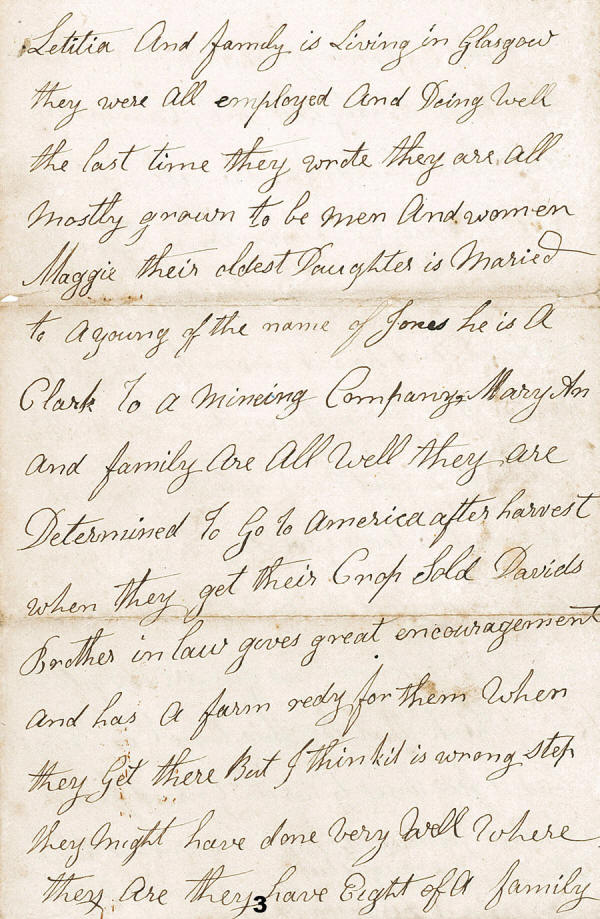 Letitia And family is Living in Glasgow
they were All employed And Doing Well
the last time they wrote they are All
mostly grown to be men And women
Maggie their oldest Daughter is Maried
to A young of the name of Jones he is A
Clark To a mineing Company Mary An
And family Are All Well they are
Determined To Go To America after harvest
when they get their Crop Sold Davids
Brother in law goves great encouragement
And has A farm redy for them When
they Get there But I think it is wrong step
they Might have done Very Well Where
they Are they have Eight of A family
3